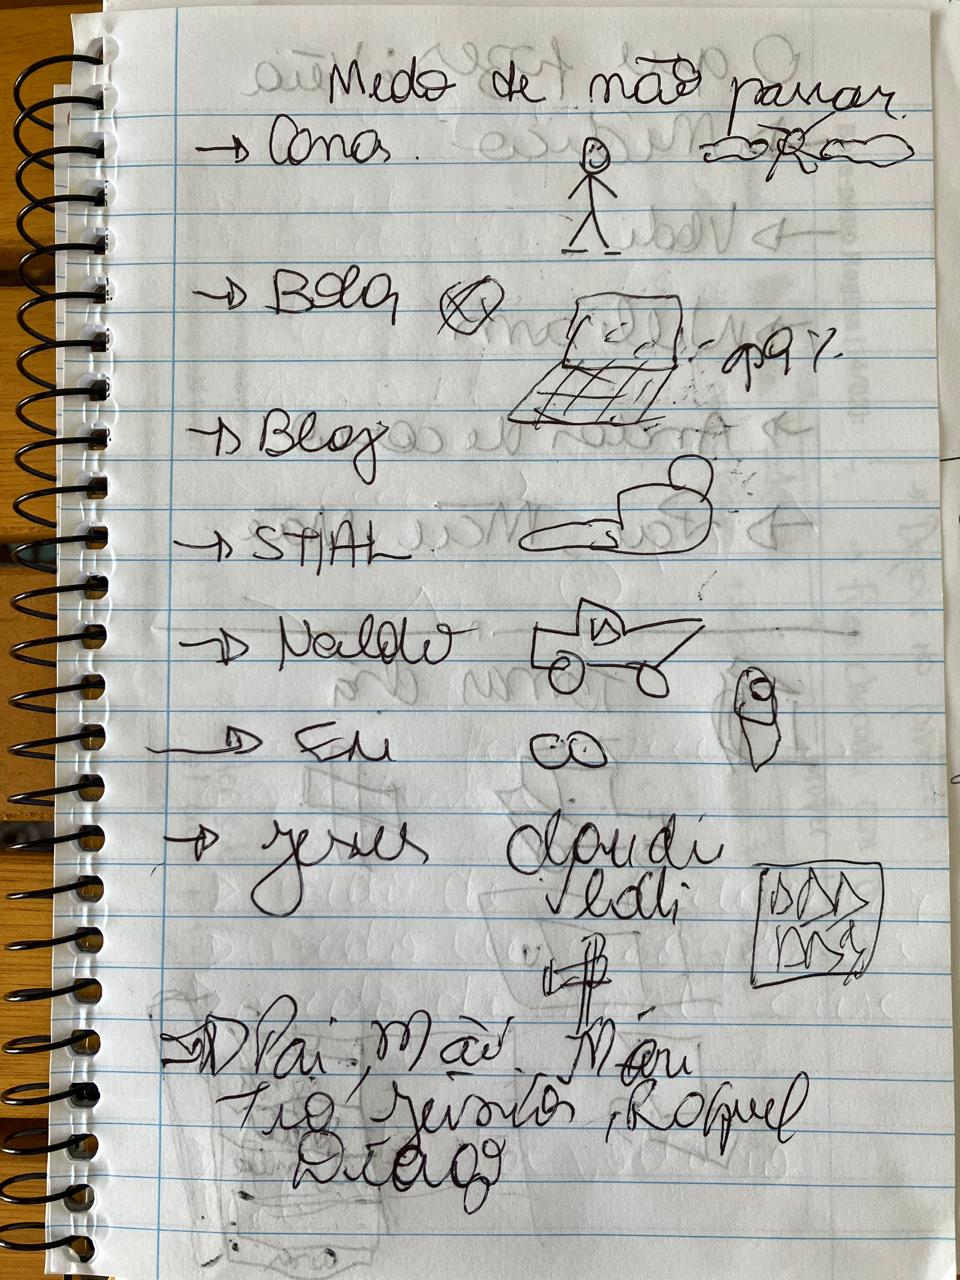 Medo de não passar
→ Conas.
→ Bola
→ Blog
→ STJAL
→ Naldo
→ Eu
→ Jesus Claudi
Vladi
→ Pai, Mãe
Tio, Raquel
Diago